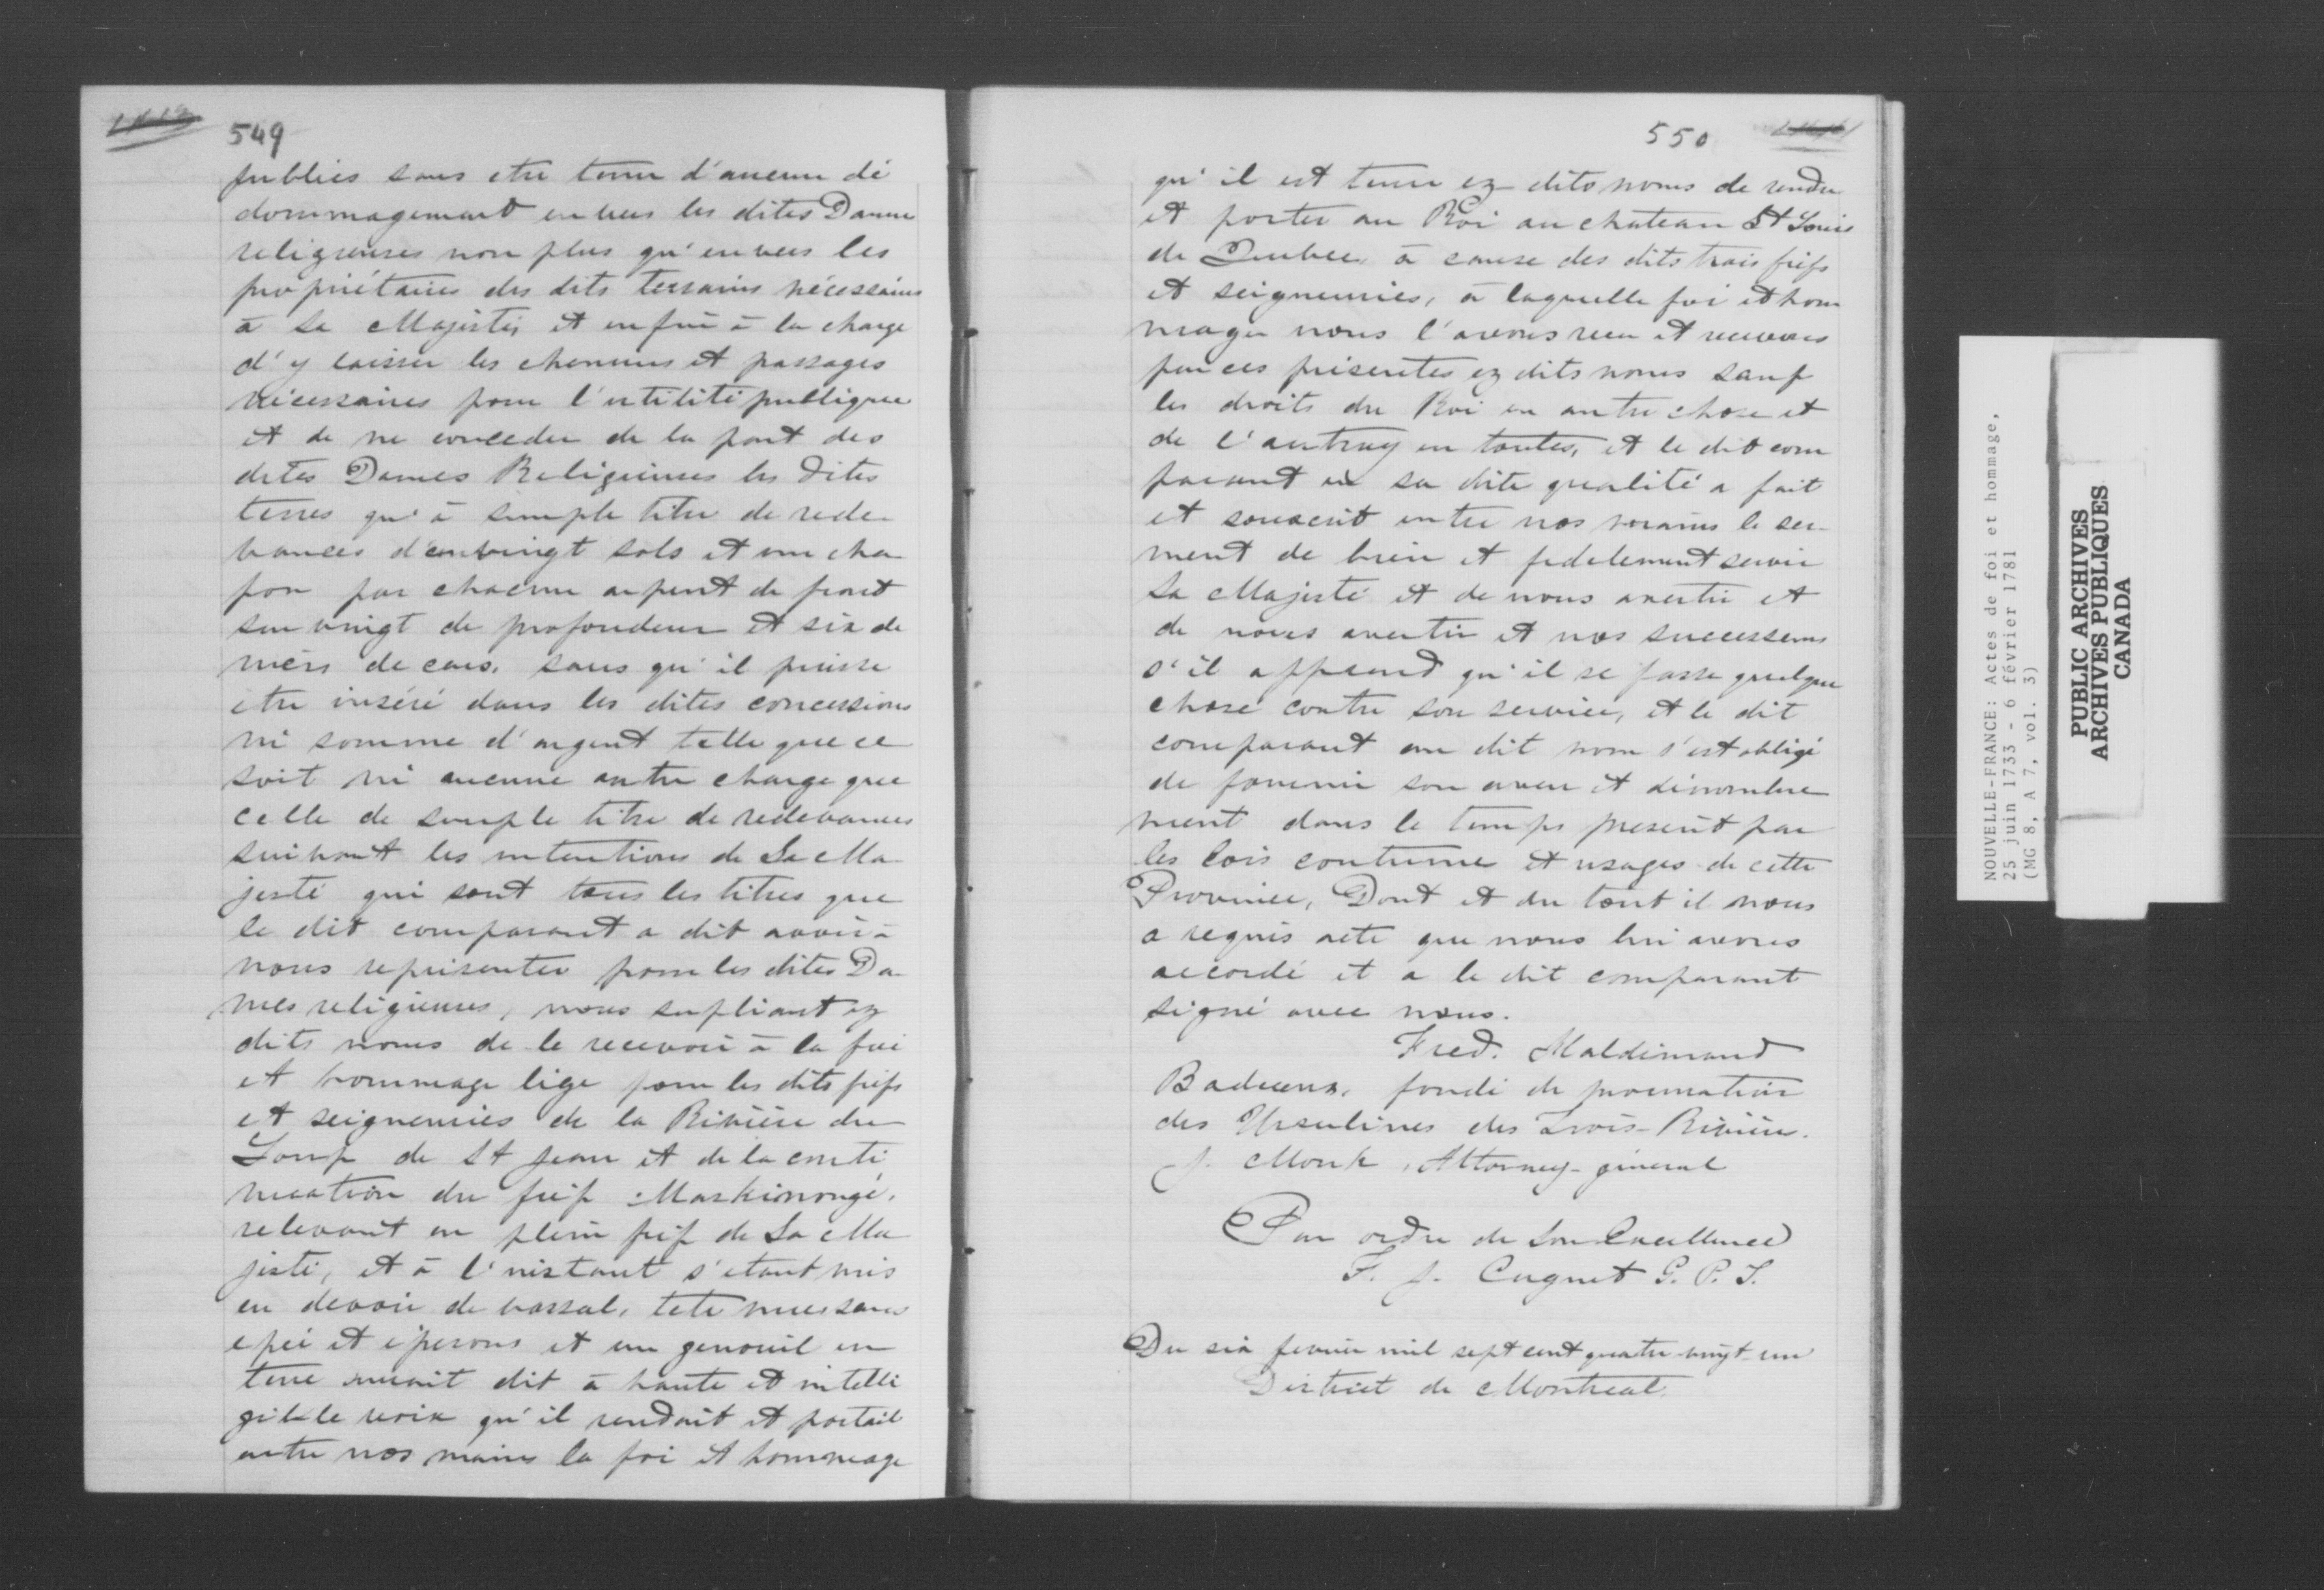 549
publics sans etre tenu d'aucun dé
dommagement envers les dites Dames
religieuses non plus qu'envers les
propriétaires des dits terrains nécessaires
à Sa Majesté, et enfin à la charge
d'y laisser les chemins et passages
nécessaires pour l'utilité publique
et de ne conceder de la part des
dites Dames Religieuses les dites
terres qu'à simple titre de rede-
vances d'un vingt sols et un cha
pon par chacun arpent de front
sur vingt de profondeur et six de
niers de cens, sans qu'il puisse
être inséré dans les dites concessions
ni somme d'argent telle que ce
soit ni aucune autre charge que
celle de simple titre de redevances
suivant les intentions de Sa Ma
jesté qui sont tous les titres que
le dit comparant a dit avoir à
nous représenter pour les dites Da
mes religieuses, nous supliant ez
dits noms de le recevoir à la foi
et hommage lige pour les dits fiefs
et seigneuries de la Rivière du
Loup de St Jean et de la conti
nuation du fief Maskinongé,
relevant en plein fief de Sa Ma
jesté, et à l'instant s'etant mis
en devoir de vassal, tete nue sans
epée et éperons et un genouil en
terre auroit dit à haute et intelli
gible voix qu'il rendait et portait
entre nos mains la foi et hommage
550
qu'il est tenu ez dits noms de rendre
et porter au Roi au chateau St Louis
de Quebec, à cause des dits trois fiefs
et seigneuries, à laquelle foi et hom
mages nous l'avons recu et recevons
par ces présentes ez dits noms sauf
les droits du Roi en autre chose et
de l'autruy en toutes, et le dit com
parant en sa dite qualité a fait
et souscrit entre nos mains le ser-
ment de bien et fidelement servir
Sa Majesté et de nous avertir et
de nous avertir et nos successeurs
s'il apprend qu'il se fasse quelque
chose contre son service, et le dit
comparant au dit nom s'est obligé
de fournir son aveu et dénombre
ment dans le temps prescrit par
les lois coutume et usages de cette
Province, Dont et du tout il nous
a requis acte que nous lui avons
accordé et a le dit comparant
signé avec nous.
Fred. Haldimand
Badeaux, fondé de procuration
des Ursulines des Trois-Rivières.
J. Monk, Attorney-général
Par ordre de Son Excellence
F. J. Cugnet G. P. T.
Du six fevrier mil sept cent quatre-vingt-un
District de Montreal.
NOUVELLE-FRANCE: Actes de foi et hommage,
25 juin 1733 - 6 février 1781
(MG 8, A 7, vol. 3)
PUBLIC ARCHIVES
ARCHIVES PUBLIQUES
CANADA